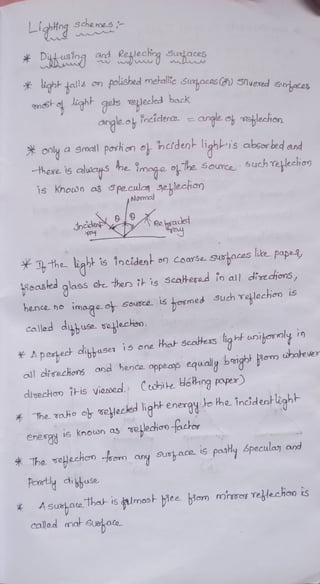 Lighting schemes :-
* Diffusing and Reflecting Surfaces
* light falls on polished metallic surfaces (or) Silvered surfaces
most of light gets reflected back
angle of incidence = angle of reflection
* only a small portion of incident light is absorbed and
there is always the image of the source. such reflection
is known as specular reflection
Normal
Incident ray θ θ Refracted ray
* If the light is incident on coarse surfaces like paper,
froasted glass etc then it is scattered in all directions,
hence no image of source is formed such reflection is
called diffuse reflection.
* A perfect diffuser is one that scatters light uniformly in
all directions and hence appears equally bright from whatever
direction it is viewed. (white blotting paper)
* The ratio of reflected light energy to the incident light
energy is known as reflection factor
* The reflection from any surface is partly specular and
Partly diffuse
* A surface that is almost free from mirror reflection is
called mat surface.